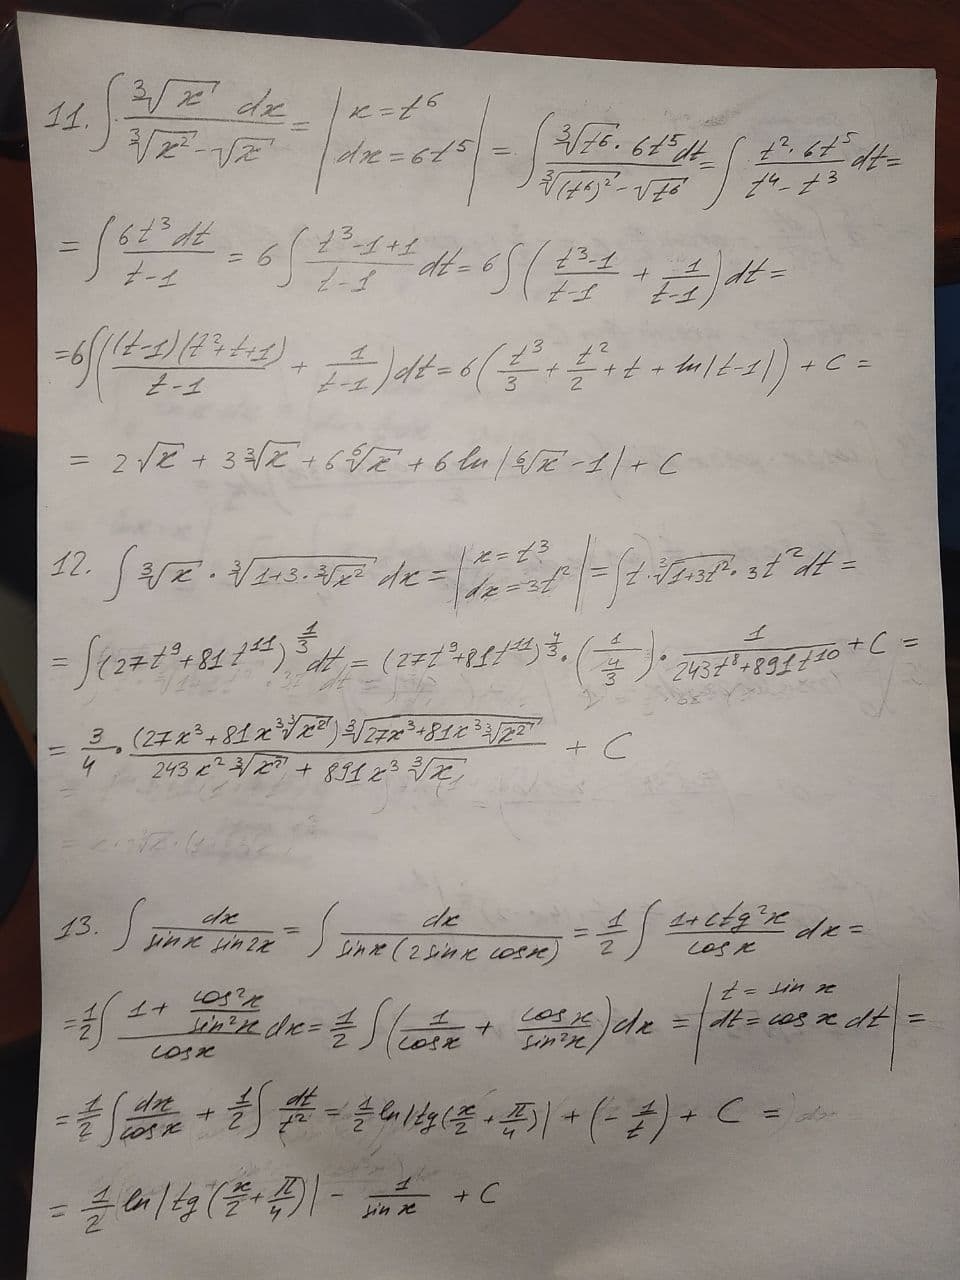 11. ∫ ∛x dx / (∛x² - √x) = | x = t⁶ ; dx = 6t⁵ | = ∫ ∛t⁶ · 6t⁵ dt / (∛(t⁶)² - √t⁶) = ∫ t² · 6t⁵ / (t⁴ - t³) dt =
= ∫ 6t³ dt / (t-1) = 6 ∫ (t³-1+1) / (t-1) dt = 6 ∫ ( (t³-1)/(t-1) + 1/(t-1) ) dt =
= 6 ∫ ( (t-1)(t²+t+1) / (t-1) + 1/(t-1) ) dt = 6 ( t³/3 + t²/2 + t + ln|t-1| ) + C =
= 2√x + 3∛x + 6 ⁶√x + 6 ln | ⁶√x - 1 | + C
12. ∫ ∛x · ∛(1+3·∛x²) dx = | x = t³ ; dx = 3t² | = ∫ t · ∛(1+3t²) · 3t² dt =
= ∫ (27t⁹ + 81t¹¹)^(1/3) dt = (27t⁹ + 81t¹¹)^(4/3) · ( 1 / (4/3) ) · 1 / (243t⁸ + 891t¹⁰) + C =
= 3/4 · (27x³ + 81x³ ∛x²) ∛(27x³ + 81x³ ∛x²) / (243x² ∛x² + 891x³ ∛x) + C
13. ∫ dx / (sinx sin2x) = ∫ dx / (sinx (2sinx cosx)) = 1/2 ∫ (1+ctg²x) / cosx dx =
= 1/2 ∫ (1 + cos²x/sin²x) / cosx dx = 1/2 ∫ ( 1/cosx + cosx/sin²x ) dx = | t = sin x ; dt = cos x dt | =
= 1/2 ∫ dx/cosx + 1/2 ∫ dt/t² = 1/2 ln|tg(x/2 + π/4)| + (- 1/t) + C =
= 1/2 ln|tg(x/2 + π/4)| - 1/sin x + C